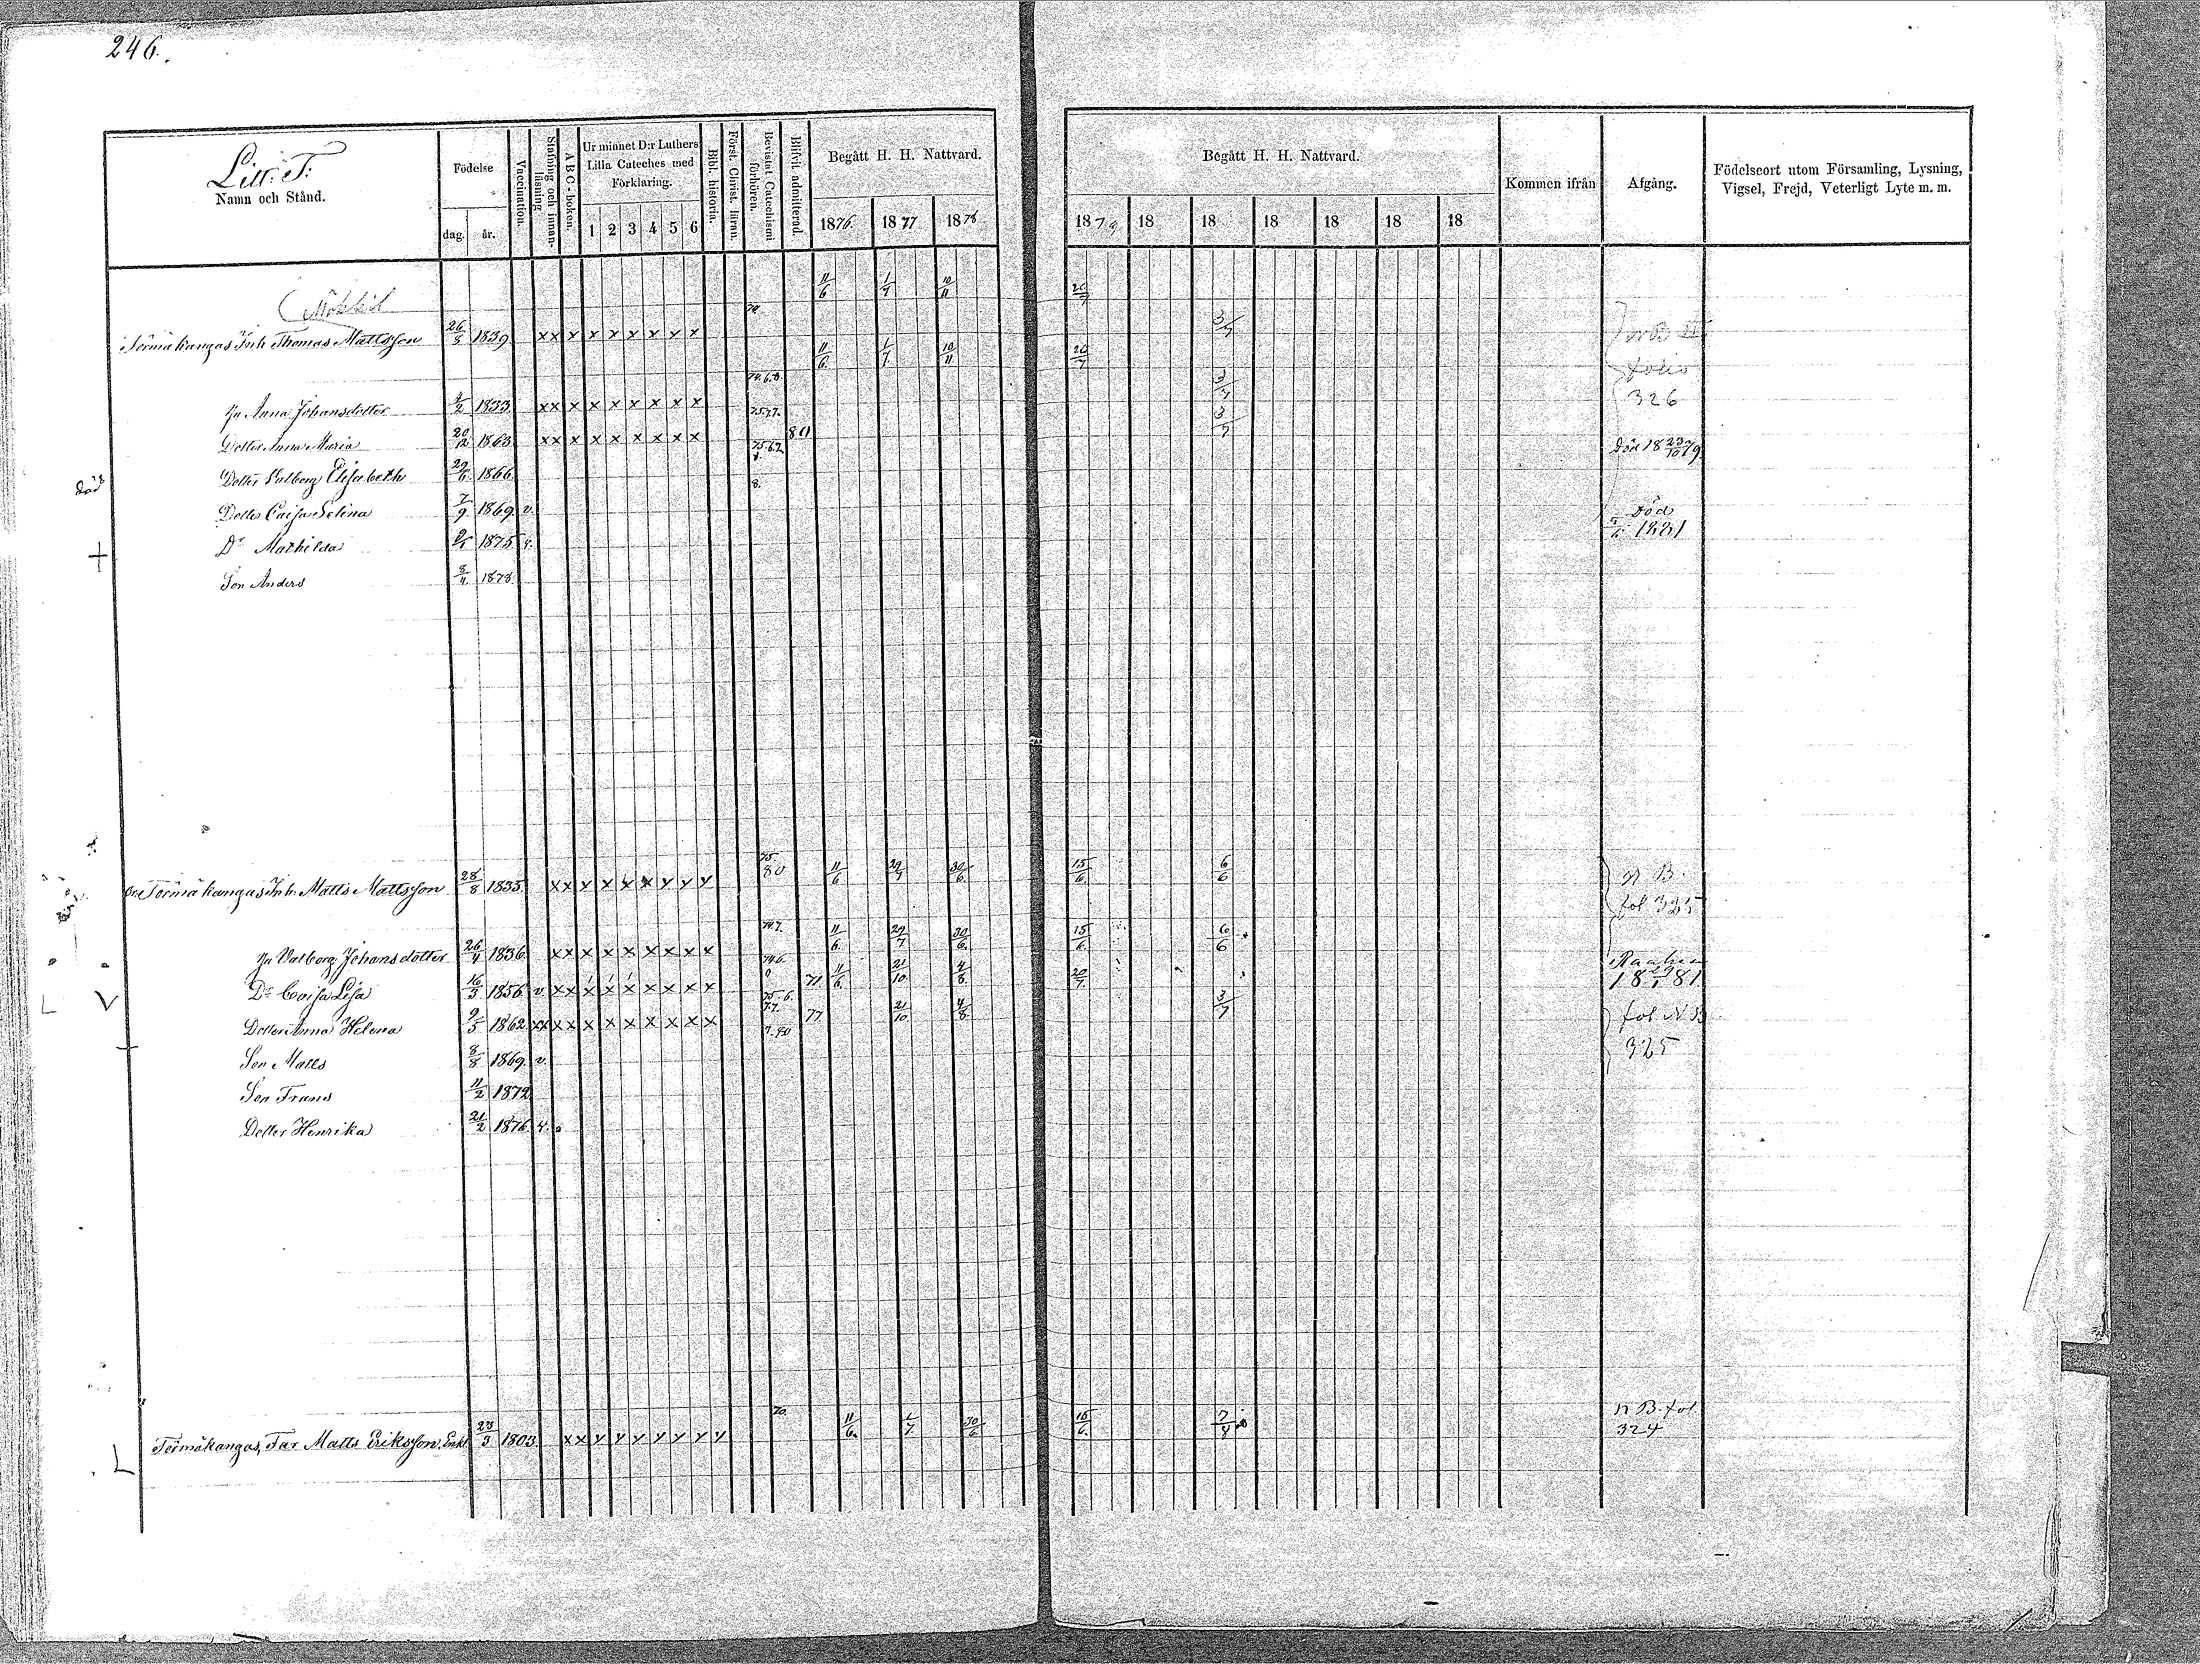 246.
Litt: T:
Namn och Stånd.
Födelse
dag. år.
Vaccination.
Stafning och innanläsning
ABC-boken.
Ur minnet D:r Luthers Lilla Cateches med Förklaring.
1 2 3 4 5 6
Bibl. historia.
Först. Christ. läran.
Bevistat Catechismi förhören.
Blifvit admitterad.
Begått H. H. Nattvard.
1876. 1877 1878
Begått H. H. Nattvard.
1879 18 18 18 18 18 18
Kommen ifrån
Afgång.
Födelseort utom Församling, Lysning, Vigsel, Frejd, Veterligt Lyte m. m.
11/6 1/7 10/11
Törmäkangas Inh. Thomas Mattsson 26/5 1839 x x x x x x x x x 3/7
11/6. 1/7. 10/11 26/7
folio
Hu Anna Johansdotter 4/2 1833 x x x x x x x x x 3/7 326
Dotter Anna Maria 20/12 1863 x x x x x x x x x 80 3/7
Död 18 23/10 79.
Dotter Valborg Elisabeth 29/6 1866
död
Dotter Caisa Selina 7/9 1869 v. Död
1881
Dr Mathilda 1875
Son Anders 8/4 1878
Törmäkangas Inh. Matts Mattsson 28/8 1835 x x x x x x x y y y 80 11/6 29/7 30/6. 15/6. 6/6 n B.
fol 325
Hu Valborg Johansdotter 26/4 1836 x x x x x x x x x 11/6. 29/7 30/6. 15/6. 6/6
Raahe
Dr Caisa Lisa 16/3 1856 v. x x x x x x x x x 71 11/6. 21/10 4/8. 20/7. 1881
Dotter Anna Helena 9/5 1862 x x x x x x x x x x 77 21/10 4/8. 3/7 fol. N B
Son Matts 8/8 1869. v. 325
Son Frans 11/2 1872
Dotter Henrika 21/2 1876
Törmäkangas, Far Matts Eriksson, Enkl 23/3 1803 x x y y y y y y y 11/6. 1/7. 30/6. 15/6. n B. fol.
324